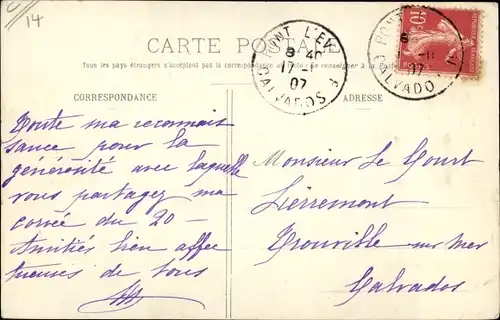 14
CARTE POSTALE
Tous les pays étrangers n'acceptent pas la correspondance au recto. (Se renseigner à la Poste)
CORRESPONDANCE
ADRESSE
PONT L'EV
8 40
17
07
CALVADOS
10
PON
07
CALVADO
Toute ma reconnais
sance pour la
générosité avec laquelle
vous partagez ma
corvée du 20 –
Amitiés bien affec
tueuses de tous
Monsieur Le Court
Pierremont
Trouville sur mer
Calvados